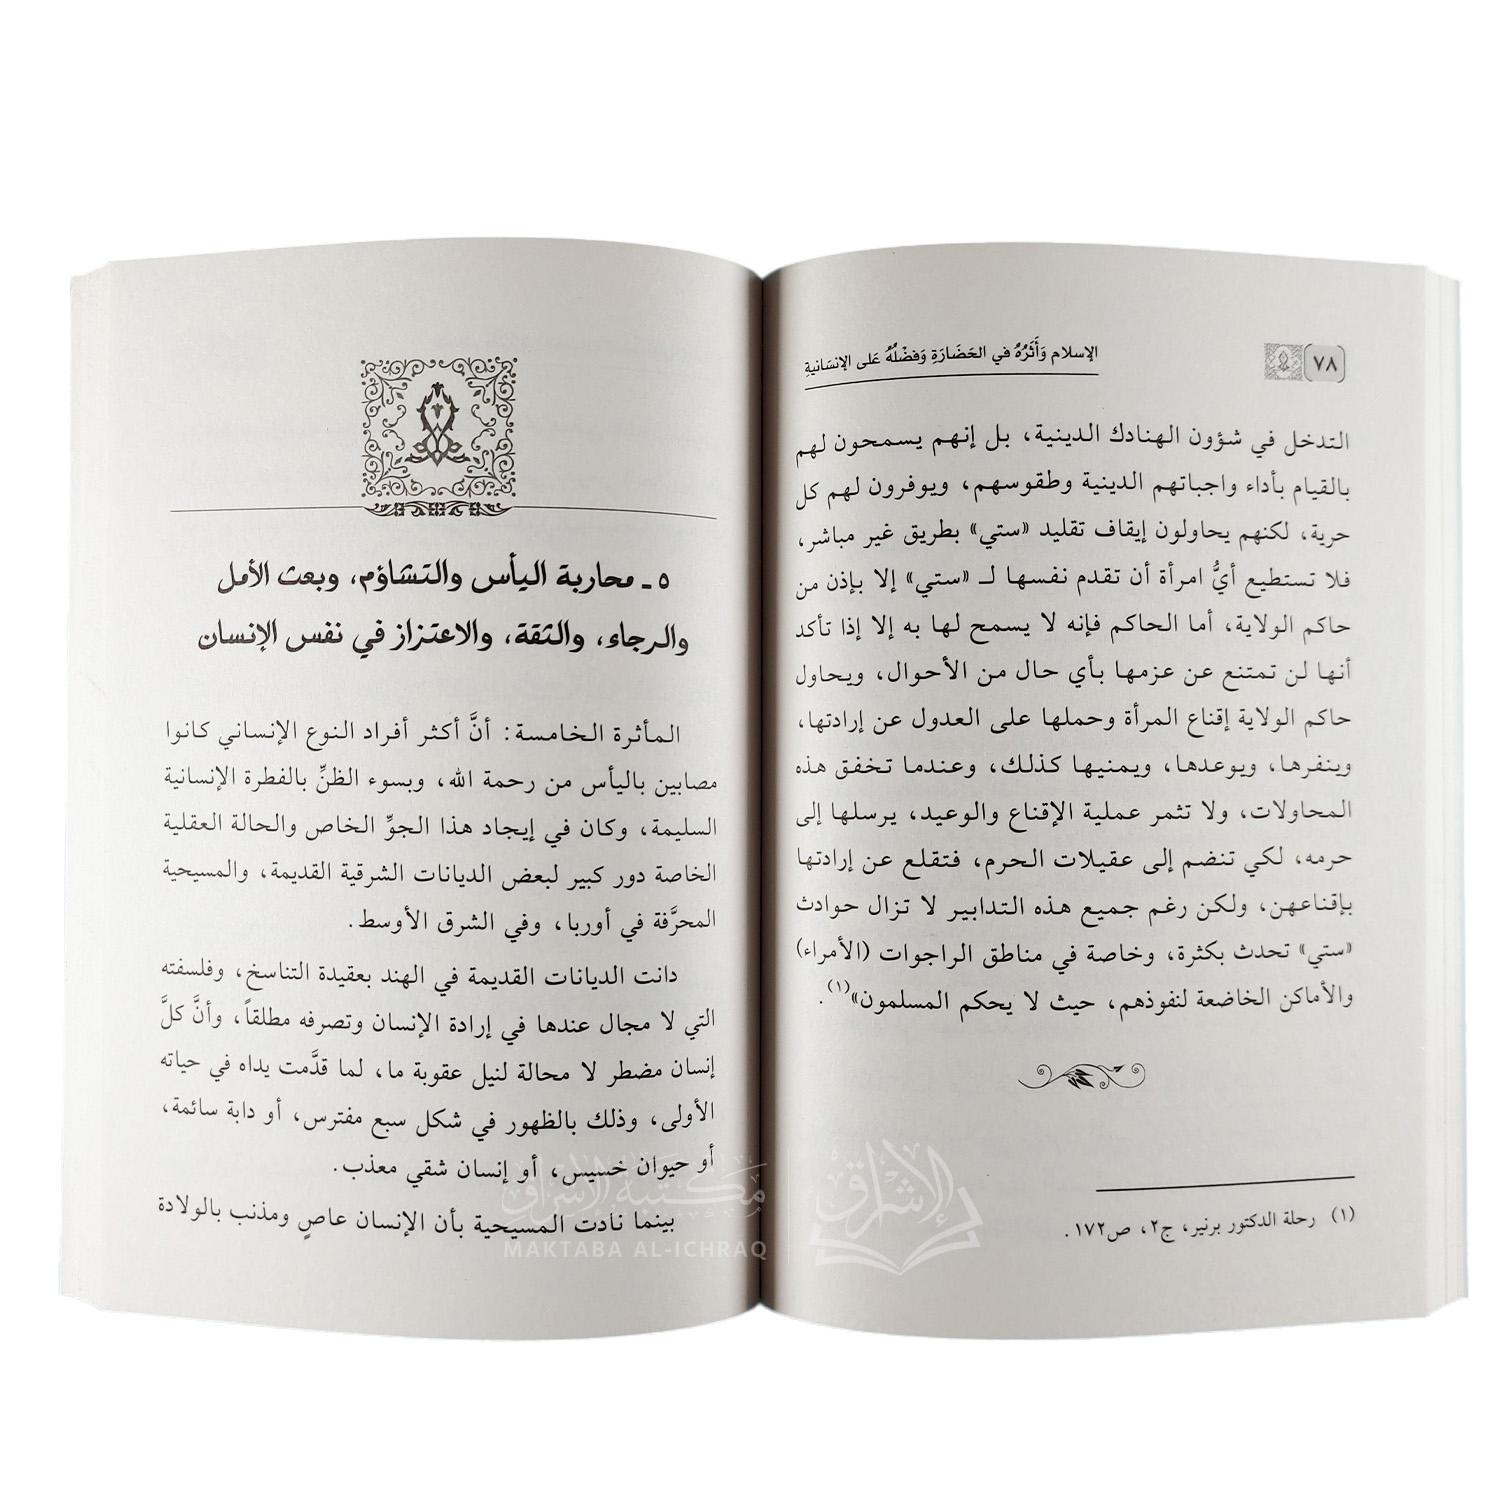 ٧٨
الإسلام وَأَثَرُهُ في الحَضَارَةِ وَفضْلُهُ عَلى الإنسَانيةِ
التدخل في شؤون الهنادك الدينية، بل إنهم يسمحون لهم
بالقيام بأداء واجباتهم الدينية وطقوسهم، ويوفرون لهم كل
حرية، لكنهم يحاولون إيقاف تقليد «ستي» بطريق غير مباشر،
فلا تستطيع أيُّ امرأة أن تقدم نفسها لـ «ستي» إلا بإذن من
حاكم الولاية، أما الحاكم فإنه لا يسمح لها به إلا إذا تأكد
أنها لن تمتنع عن عزمها بأي حال من الأحوال، ويحاول
حاكم الولاية إقناع المرأة وحملها على العدول عن إرادتها،
وينفرها، ويوعدها، ويمنيها كذلك، وعندما تخفق هذه
المحاولات، ولا تثمر عملية الإقناع والوعيد، يرسلها إلى
حرمه، لكي تنضم إلى عقيلات الحرم، فتقلع عن إرادتها
بإقناعهن، ولكن رغم جميع هذه التدابير لا تزال حوادث
«ستي» تحدث بكثرة، وخاصة في مناطق الراجوات (الأمراء)
والأماكن الخاضعة لنفوذهم، حيث لا يحكم المسلمون»(١).
(١) رحلة الدكتور برنير، ج٢، ص١٧٢.
٥ ـ محاربة اليأس والتشاؤم، وبعث الأمل
والرجاء، والثقة، والاعتزاز في نفس الإنسان
المأثرة الخامسة: أنَّ أكثر أفراد النوع الإنساني كانوا
مصابين باليأس من رحمة الله، وبسوء الظنِّ بالفطرة الإنسانية
السليمة، وكان في إيجاد هذا الجوِّ الخاص والحالة العقلية
الخاصة دور كبير لبعض الديانات الشرقية القديمة، والمسيحية
المحرَّفة في أوربا، وفي الشرق الأوسط.
دانت الديانات القديمة في الهند بعقيدة التناسخ، وفلسفته
التي لا مجال عندها في إرادة الإنسان وتصرفه مطلقاً، وأنَّ كلَّ
إنسان مضطر لا محالة لنيل عقوبة ما، لما قدَّمت يداه في حياته
الأولى، وذلك بالظهور في شكل سبع مفترس، أو دابة سائمة،
أو حيوان خسيس، أو إنسان شقي معذب.
بينما نادت المسيحية بأن الإنسان عاصٍ ومذنب بالولادة
مكتبة الإشراق
MAKTABA AL-ICHRAQ
الإشراق